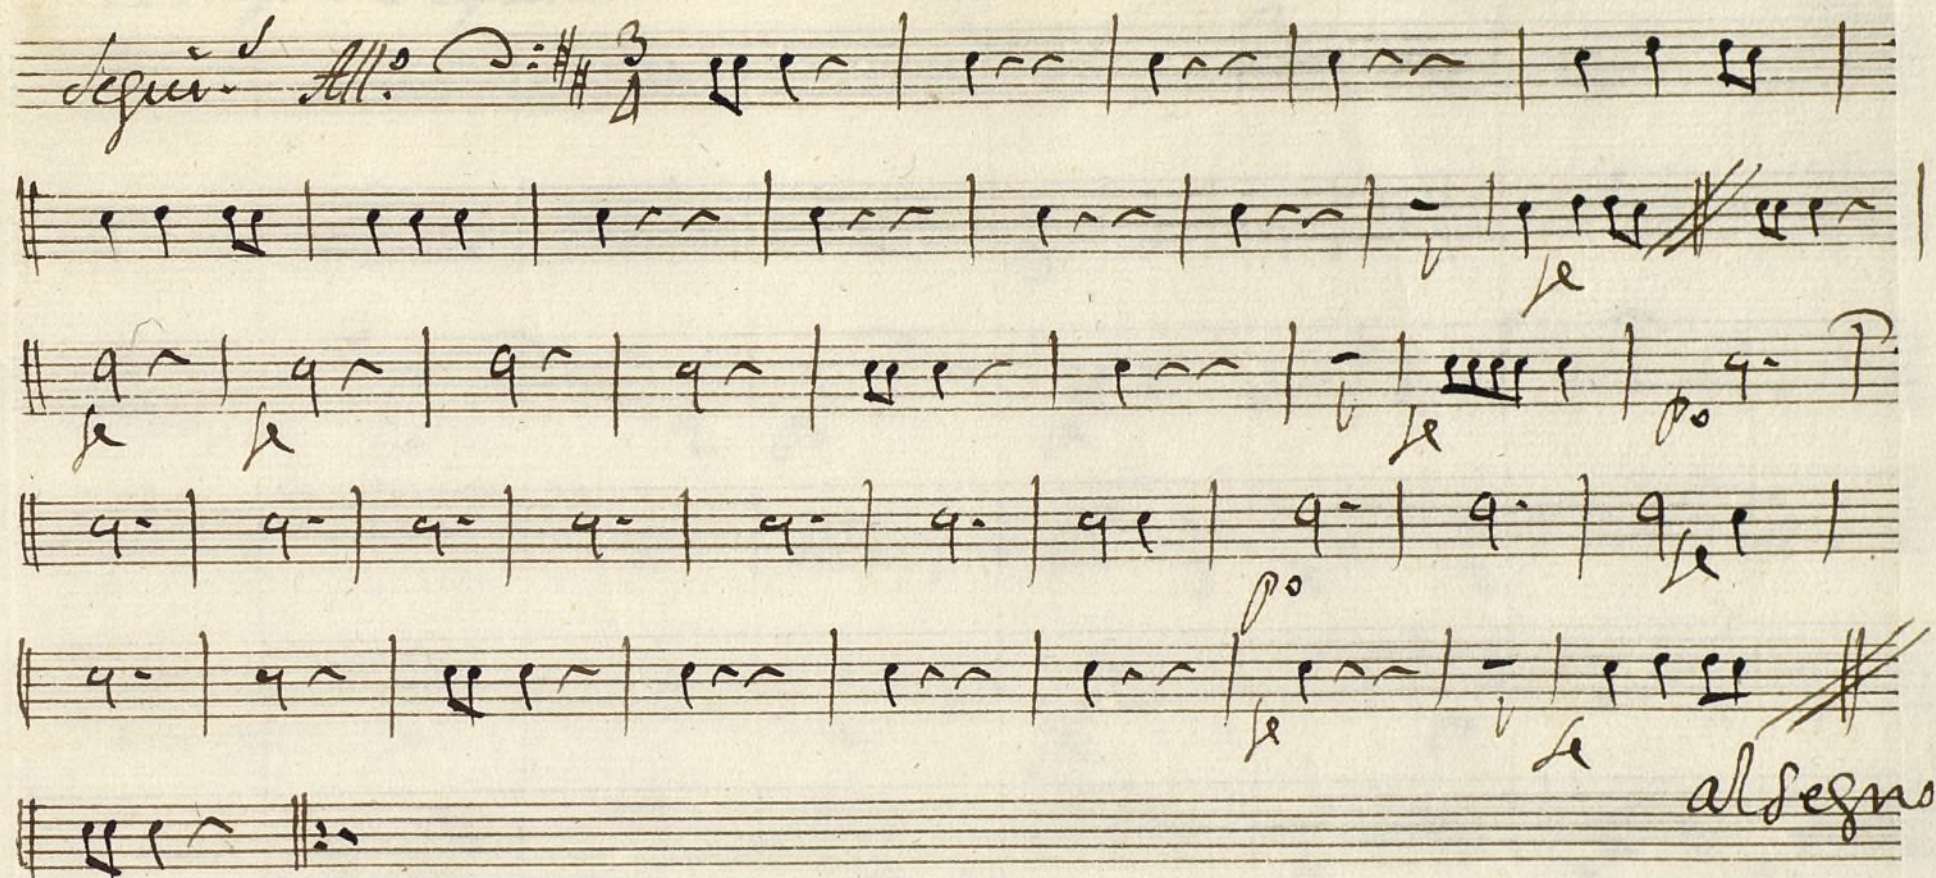 Seguī.s All.o 3/4
fe
fe fe fe po
po fe
fe fe
al segno